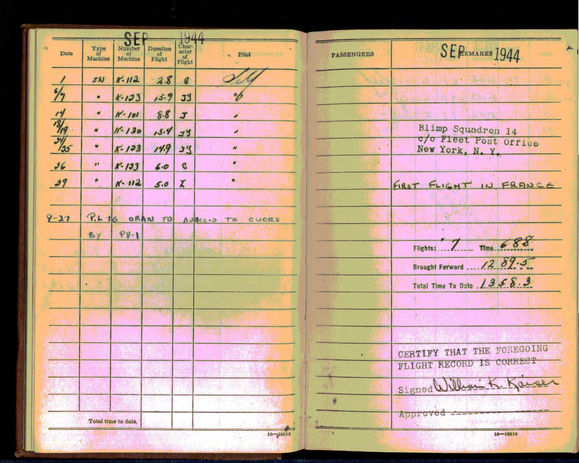 SEP 1944
Date Type of Machine Number of Machine Duration of Flight Character of Flight Pilot
1 ZN K-112 2.8 C Self
6/7 " K-123 15.9 JJ "
14 " K-101 8.8 J "
18/19 " K-130 15.4 JJ "
24/25 " K-123 14.9 JJ "
26 " K-123 6.0 C "
29 " K-112 5.0 Z "
9-27 P.L TO ORAN TO AJACCIO TO CUERS
BY PV-1
Total time to date,
16-13616
PASSENGERS SEP REMARKS 1944
Blimp Squadron 14
c/o Fleet Post Office
New York, N. Y.
FIRST FLIGHT IN FRANCE
Flights: 7 Time 68.8
Brought Forward 1289.5
Total Time To Date 1358.3
CERTIFY THAT THE FOREGOING
FLIGHT RECORD IS CORRECT
Signed William K. Kaiser
Approved
16-13616